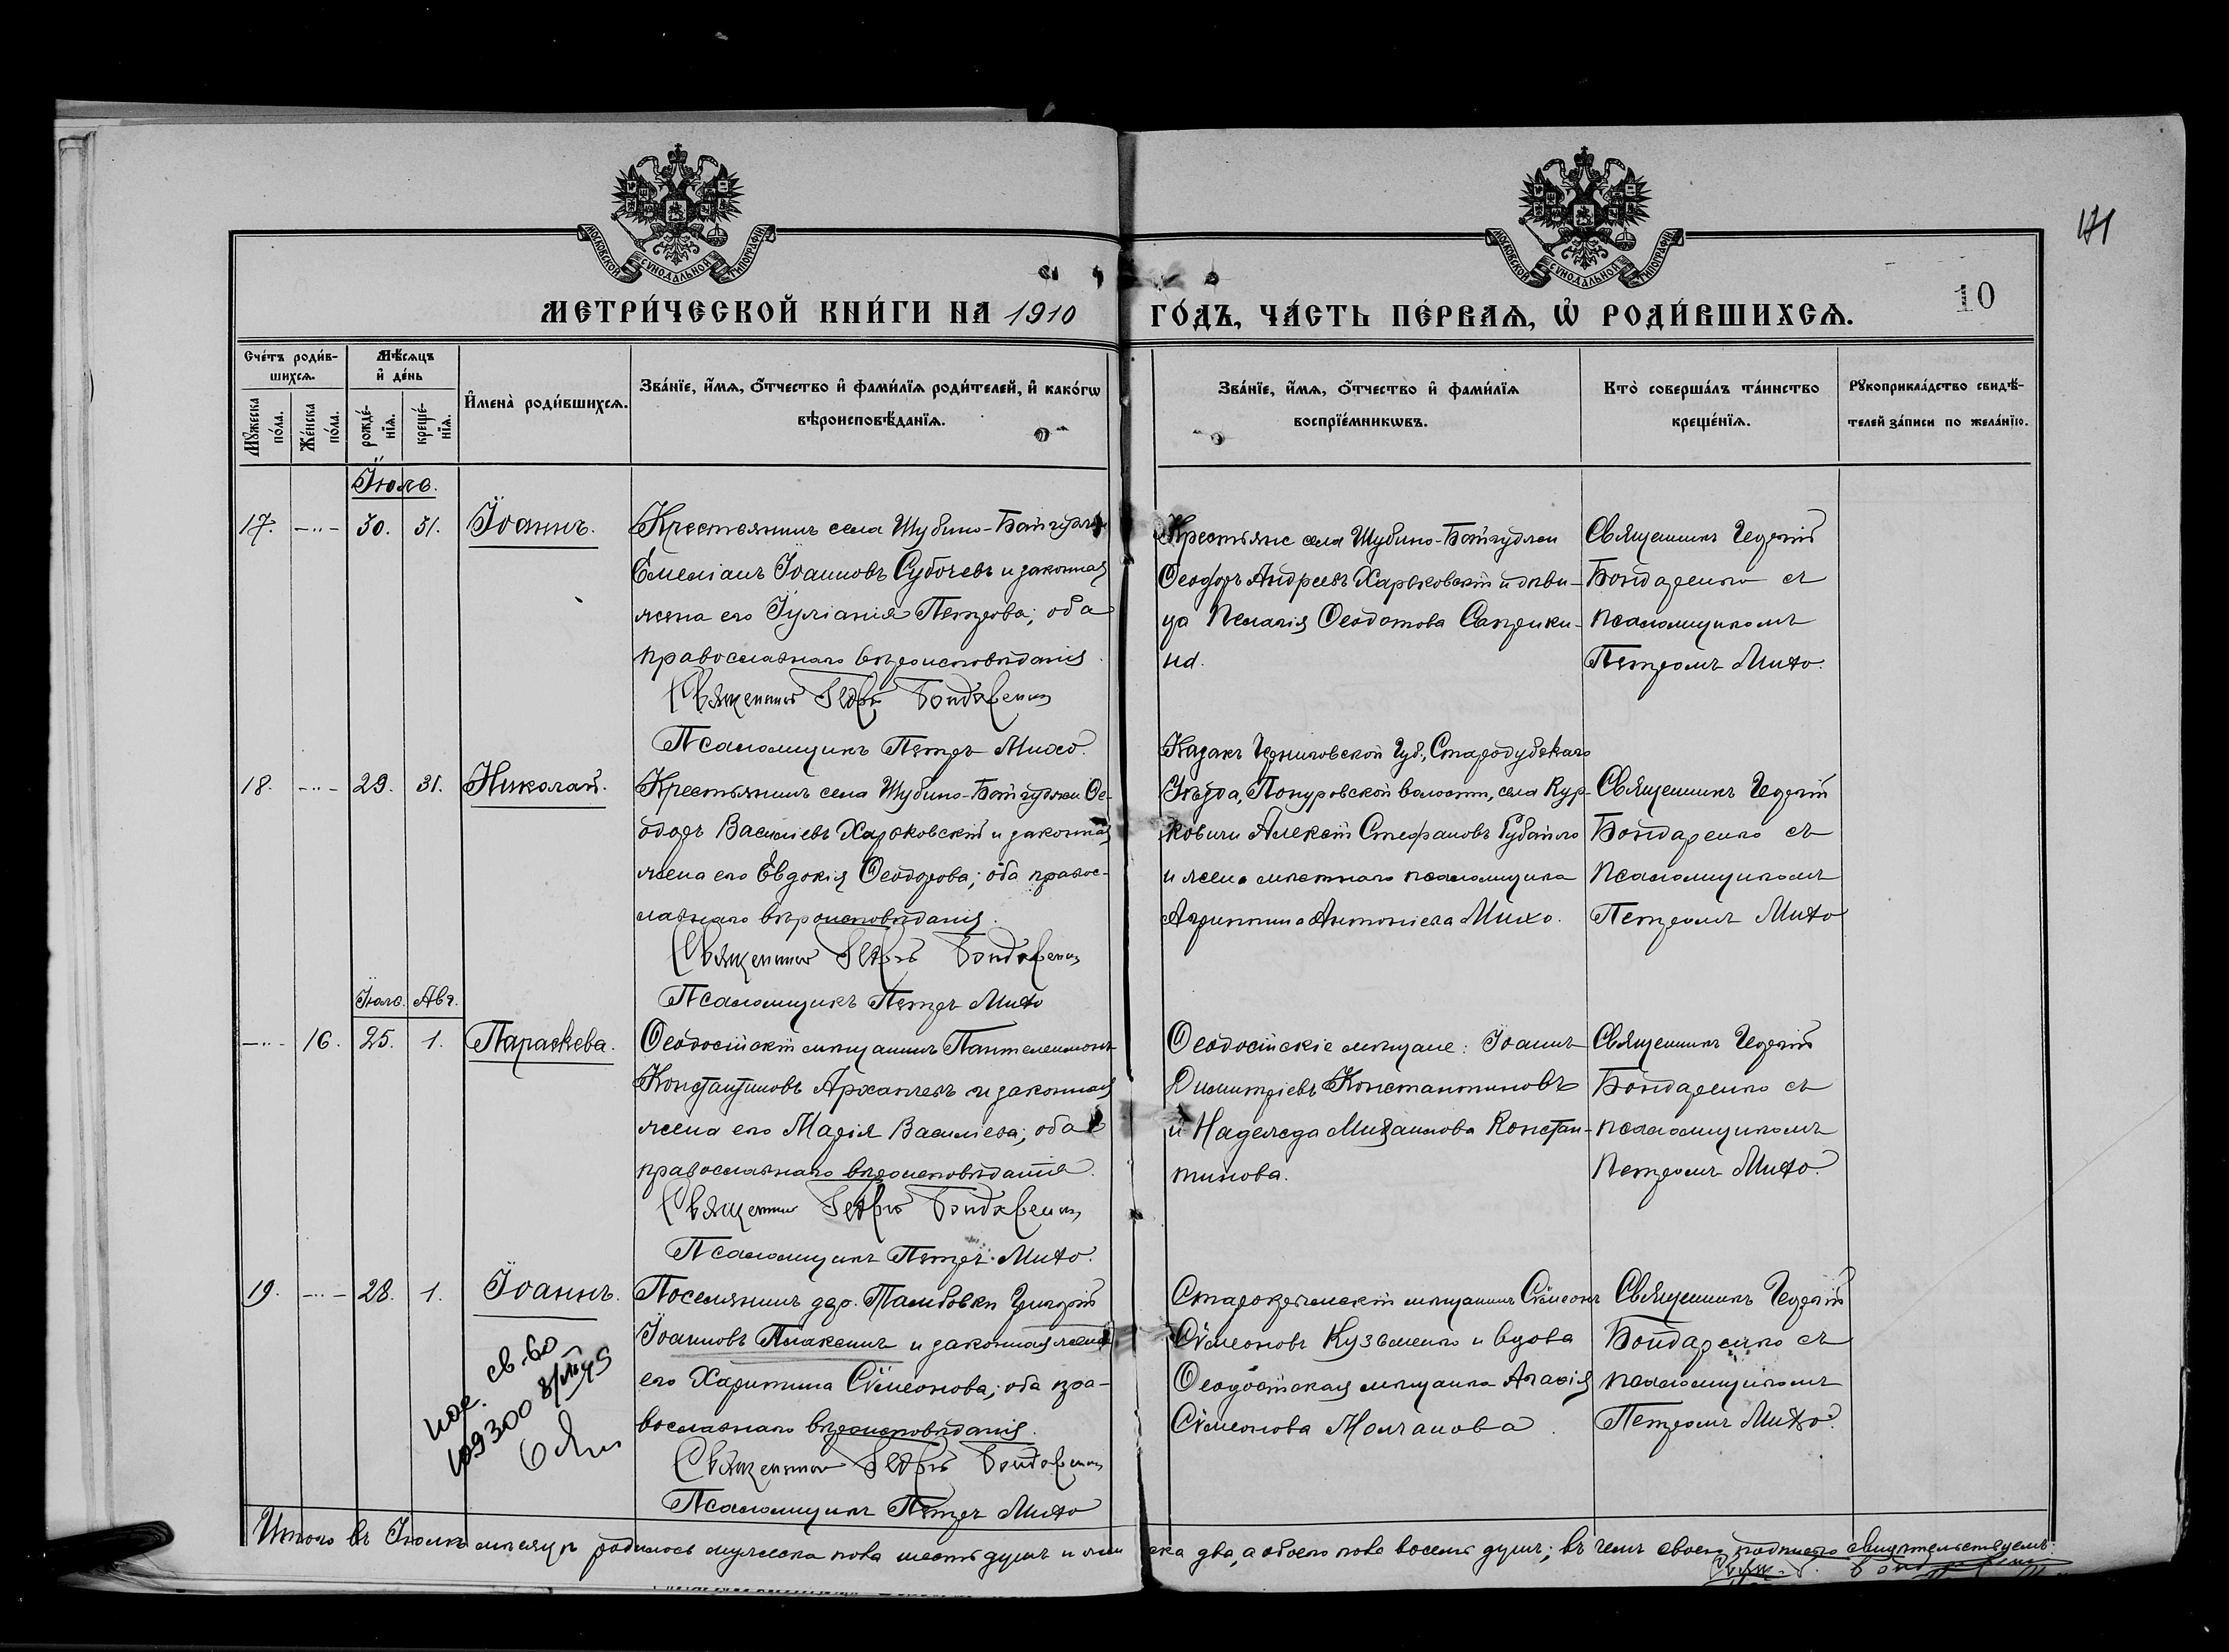 МОСКОВСКОЙ СѴНОДАЛЬНОЙ ТИПОГРАФІИ
МОСКОВСКОЙ СѴНОДАЛЬНОЙ ТИПОГРАФІИ
171
10
МЕТРИ́ЧЕСКОЙ КНИ́ГИ НА 1910 ГО́ДЪ, ЧА́СТЬ ПЕ́РВАѦ, Ѡ҆ РОДИ́ВШИХСѦ.
Сче́тъ роди́в-
шихсѧ.
Мꙋ́жеска по́ла.
Же́нска по́ла.
Мѣ́сѧцъ
и҆ де́нь
рожде́-
нїѧ.
креще́-
нїѧ.
И҆мена̀ роди́вшихсѧ.
Зва́нїе, и҆́мѧ, ѻ҆́тчество и҆ фами́лїѧ роди́телей, и҆ како́гѡ
вѣроисповѣ́данїѧ.
Зва́нїе, и҆́мѧ, ѻ҆́тчество и҆ фами́лїѧ
воспрїе́мникѡвъ.
Кто̀ соверша́лъ та́инство
креще́нїѧ.
Рꙋкоприкла́дство свидѣ́-
телей за́писи по жела́нїю.
Іюль.
17. -"- 30. 31. Іоаннъ.
Крестьянинъ села Шубино-Байгуджи
Емеліанъ Іоанновъ Субочевъ и законная
жена его Іуліанія Петрова; оба
православнаго вѣроисповѣданія.
Священникъ Георгій Бондаренко
Псаломщикъ Петръ Михо.
Крестьяне села Шубино-Байгуджи
Ѳеодоръ Андреевъ Харьковскій и дѣви-
ца Пелагія Ѳеодотова Саприки-
на.
Священникъ Георгій
Бондаренко съ
псаломщикомъ
Петромъ Михо.
18. -"- 29. 31. Николай.
Крестьянинъ села Шубино-Байгуджи Ѳе-
одоръ Василіевъ Харьковскій и законная
жена его Евдокія Ѳеодорова; оба правос-
лавнаго вѣроисповѣданія.
Священникъ Георгій Бондаренко
Псаломщикъ Петръ Михо
Казакъ Черниговской Губ., Стародубскаго
Уѣзда, Понуровской волости, села Кур-
ковичи Алексій Стефановъ Губайло
и жена мѣстнаго псаломщика
Агриппина Антоніева Михо.
Священникъ Георгій
Бондаренко съ
Псаломщикомъ
Петромъ Михо
Іюль. Авг.
-"- 16. 25. 1. Параскева.
Ѳеодосійскій мѣщанинъ Пантелеимонъ
Константиновъ Архангелъ и законная
жена его Марія Василіева; оба
православнаго вѣроисповѣданія.
Священникъ Георгій Бондаренко
Псаломщикъ Петръ Михо.
Ѳеодосійскіе мѣщане: Іоаннъ
Димитріевъ Константиновъ
и Надежда Михаилова Констан-
тинова.
Священникъ Георгій
Бондаренко съ
псаломщикомъ
Петромъ Михо.
19. -"- 28. 1. Іоаннъ.
Поселянинъ дер. Тамбовки Григорій
Іоанновъ Плаксинъ и законная жена
его Харитина Сѵмеонова; оба пра-
вославнаго вѣроисповѣданія.
Священникъ Георгій Бондаренко
Псаломщикъ Петръ Михо
Старокрымскій мѣщанинъ Сѵмеонъ
Сѵмеоновъ Кузьменко и вдова
Ѳеодосійская мѣщанка Агафія
Сѵмеонова Молчанова.
Священникъ Георгій
Бондаренко съ
псаломщикомъ
Петромъ Михо.
св-во
109300
Итого въ Іюлѣ мѣсяцѣ родилось мужеска пола шесть душъ и женска два, а обоего пола восемь душъ; въ чемъ своею подписью свидѣтельствуемъ:
Свящ. Г. Бондаренко